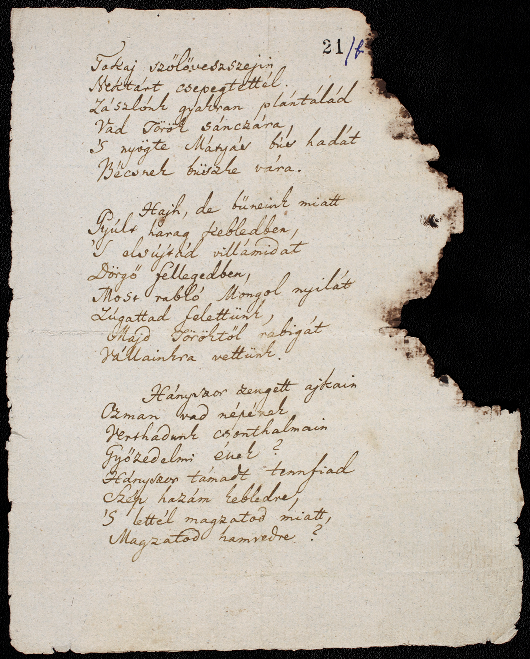 21/b
Tokaj szőlővesszejin
Nektárt csepegtettél.
Zászlónk gyakran plántálád
Vad Török sánczára,
'S nyögte Mátyás bús hadát
Bécsnek büszke vára.
Hajh, de bűneink miatt
Gyúlt harag kebledben,
'S elsújtád villámidat
Dörgő fellegedben,
Most rabló Mongol nyilát
Zúgattad felettünk,
Majd Töröktől rabigát
Vállainkra vettünk.
Hányszor zengett ajkain
Ozman vad népének
Vert hadunk csonthalmain
Győzedelmi ének?
Hányszor támadt tennfiad
Szép hazám kebledre,
'S lettél magzatod miatt,
Magzatod hamvedre?